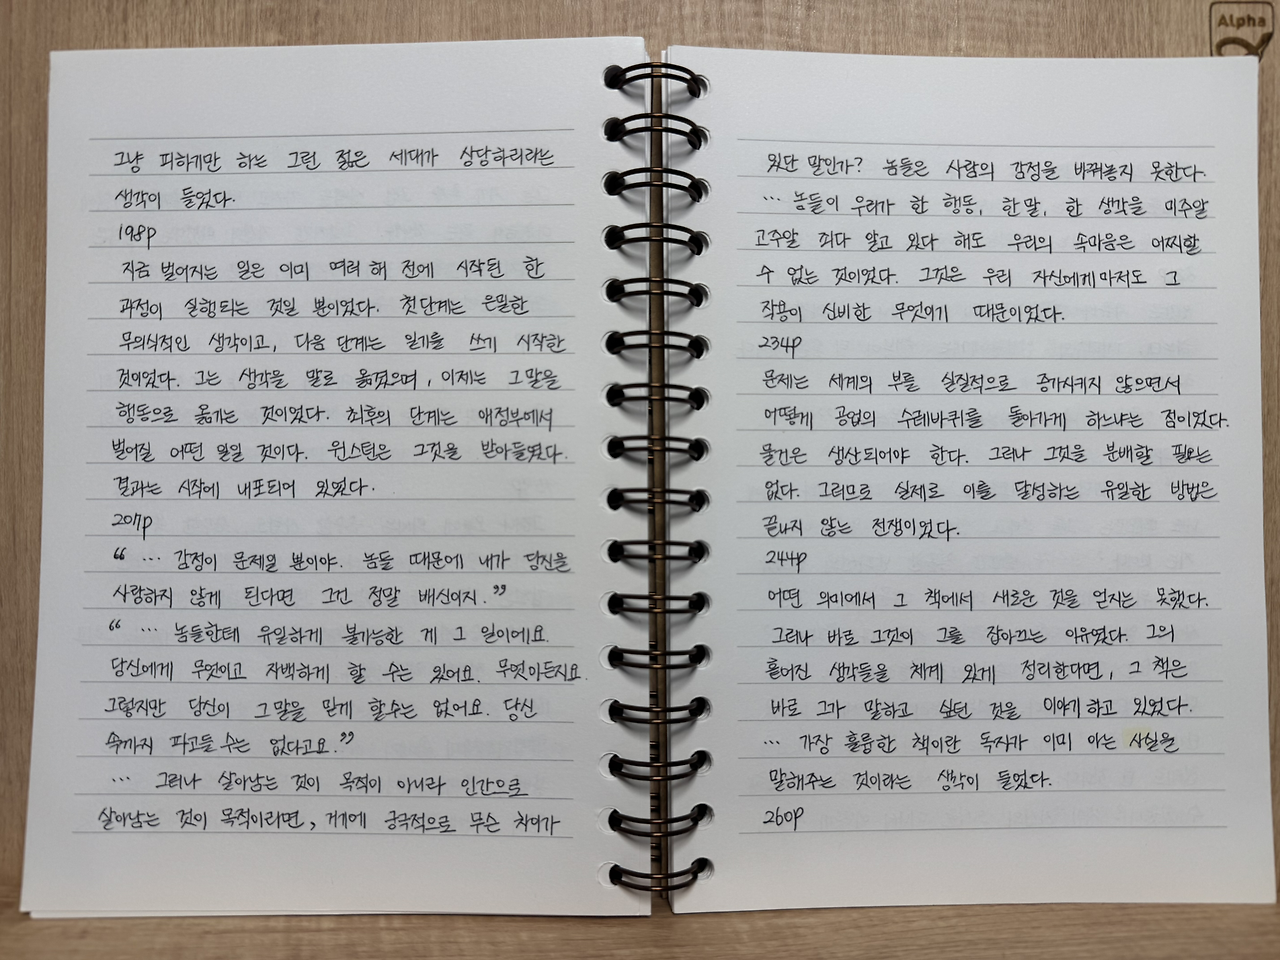 그냥 피하기만 하는 그런 젊은 세대가 상당하리라는
생각이 들었다.
198p
지금 벌어지는 일은 이미 여러 해 전에 시작된 한
과정이 실행되는 것일 뿐이었다. 첫 단계는 은밀한
무의식적인 생각이고, 다음 단계는 일기를 쓰기 시작한
것이었다. 그는 생각을 말로 옮겼으며, 이제는 그 말을
행동으로 옮기는 것이었다. 최후의 단계는 애정부에서
벌어질 어떤 일일 것이다. 윈스턴은 그것을 받아들였다.
결과는 시작에 내포되어 있었다.
207p
“ … 감정이 문제일 뿐이야. 놈들 때문에 내가 당신을
사랑하지 않게 된다면 그건 정말 배신이지.”
“ … 놈들한테 유일하게 불가능한 게 그 일이에요.
당신에게 무엇이고 자백하게 할 수는 있어요. 무엇이든지요.
그렇지만 당신이 그 말을 믿게 할 수는 없어요. 당신
속까지 파고들 수는 없다고요.”
… 그러나 살아남는 것이 목적이 아니라 인간으로
살아남는 것이 목적이라면, 거기에 궁극적으로 무슨 차이가
있단 말인가? 놈들은 사람의 감정을 바꿔놓지 못한다.
… 놈들이 우리가 한 행동, 한 말, 한 생각을 미주알
고주알 죄다 알고 있다 해도 우리의 속마음은 어찌할
수 없는 것이었다. 그것은 우리 자신에게마저도 그
작용이 신비한 무엇이기 때문이었다.
234p
문제는 세계의 부를 실질적으로 증가시키지 않으면서
어떻게 공업의 수레바퀴를 돌아가게 하느냐는 점이었다.
물건은 생산되어야 한다. 그러나 그것을 분배할 필요는
없다. 그러므로 실제로 이를 달성하는 유일한 방법은
끝나지 않는 전쟁이었다.
244p
어떤 의미에서 그 책에서 새로운 것을 얻지는 못했다.
그러나 바로 그것이 그를 잡아끄는 이유였다. 그의
흩어진 생각들을 체계 있게 정리한다면, 그 책은
바로 그가 말하고 싶던 것을 이야기하고 있었다.
… 가장 훌륭한 책이란 독자가 이미 아는 사실을
말해주는 것이라는 생각이 들었다.
260p
Alpha